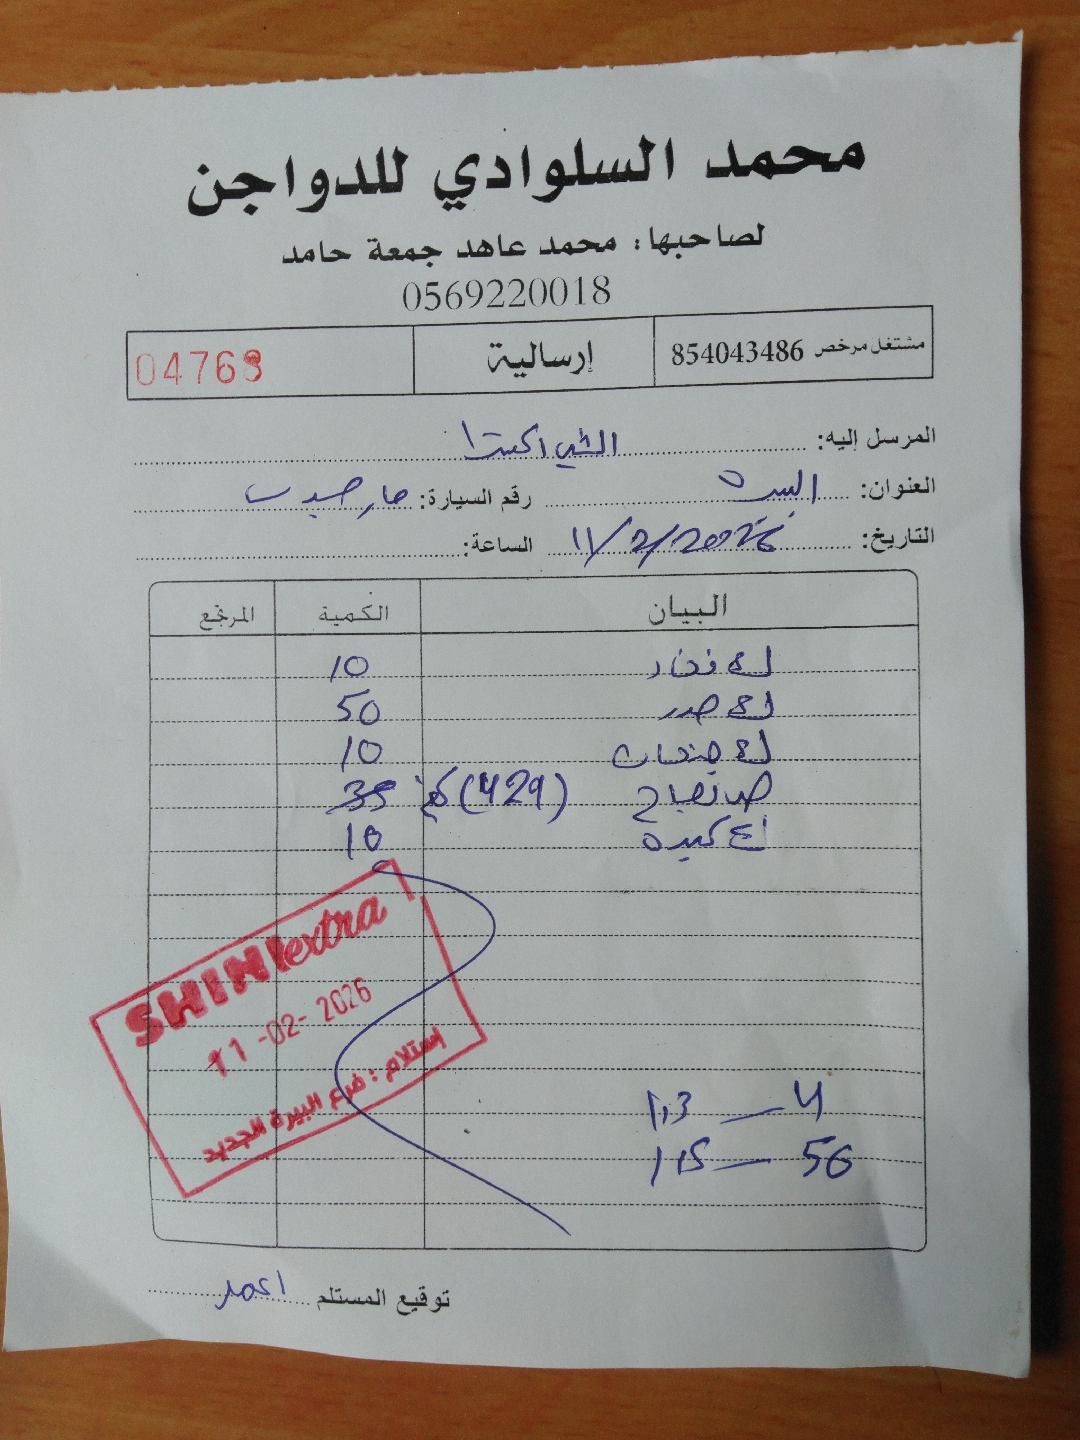 محمد السلوادي للدواجن
لصاحبها: محمد عاهد جمعة حامد
0569220018
مشتغل مرخص 854043486 إرسالية 04768
المرسل إليه: الشني اكسترا
العنوان: البيره رقم السيارة:
التاريخ: 11/2/2026 الساعة:
البيان الكمية المرتجع
ك فخار 10
ك صدر 50
ك جنحات 10
(429) كغ 35
ك كبده 10
SHINI extra
11-02-2026
إستلام: فرع البيرة الجديد
1,3 — 4
1,15 — 56
توقيع المستلم احمد